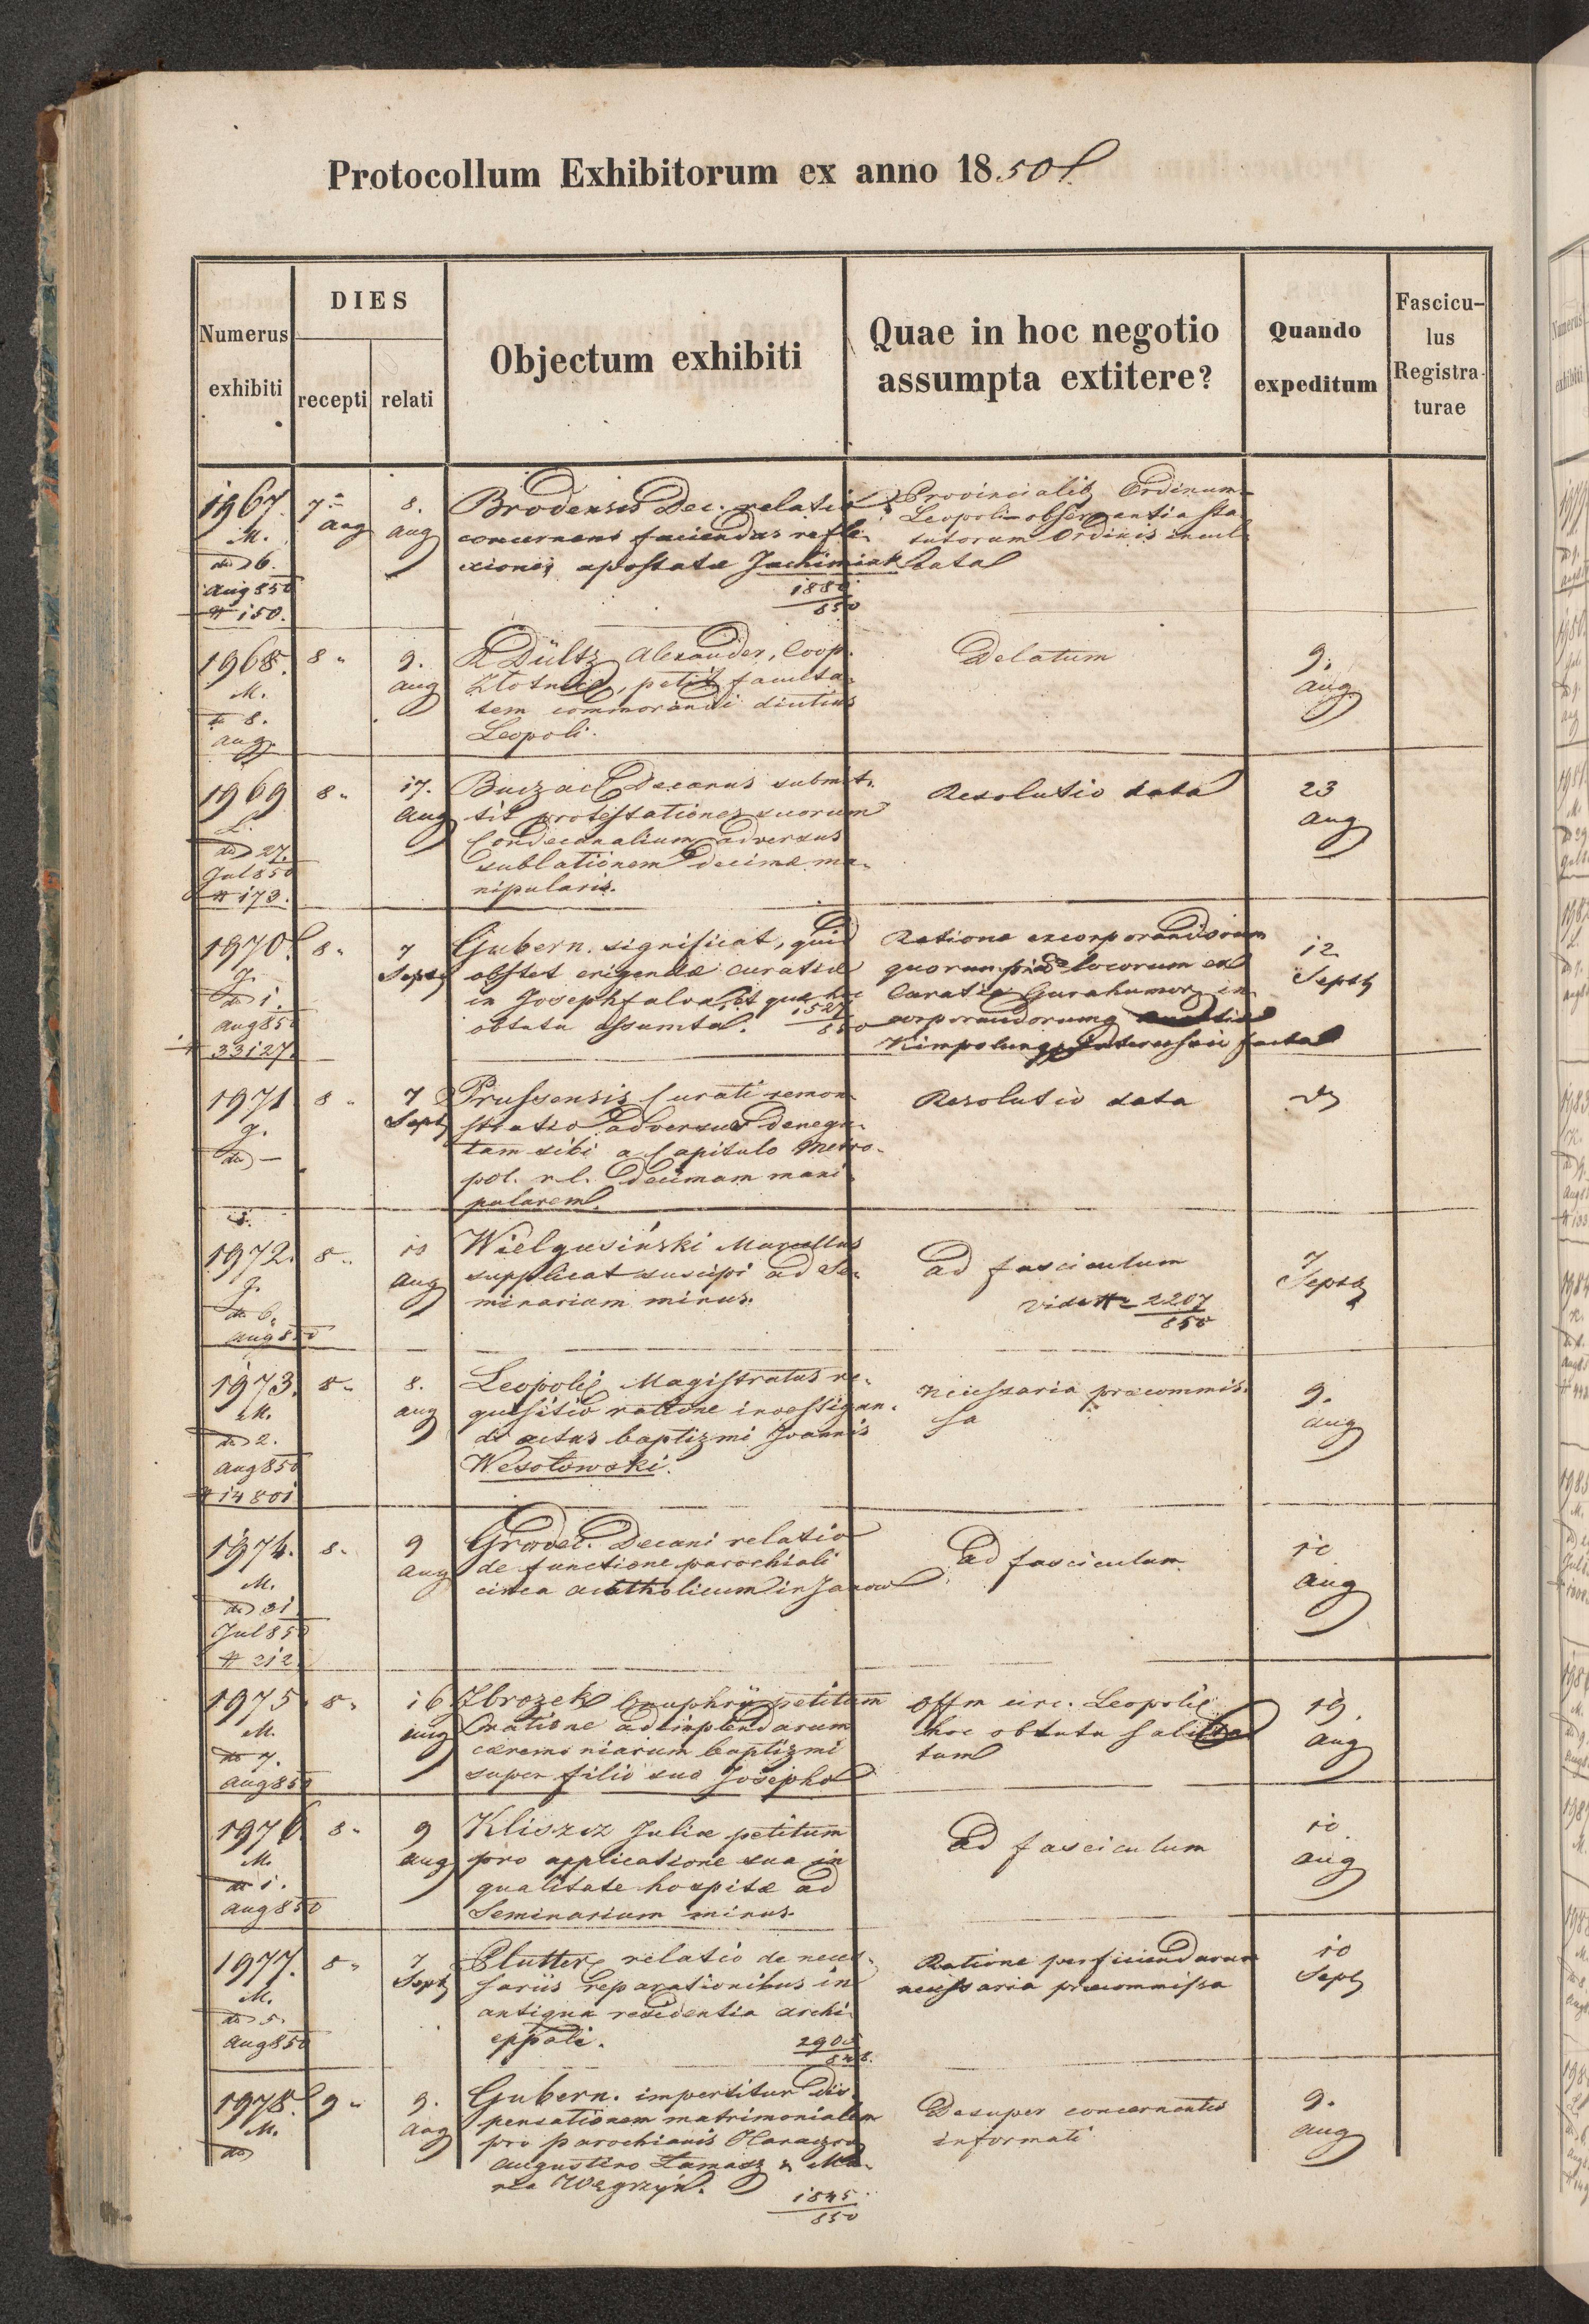 Protocollum Exhibitorum ex anno 1850
Numerus
exhibiti
DIES
recepti
relati
Objectum exhibiti
Quae in hoc negotio
assumpta extitere?
Quando
expeditum
Fascicu-
lus
Registra-
turae
1967.
M.
6.
Aug 850
# 150.
7
Aug
8.
Aug
Brodensis Dec. relatio
concernens faciendas refle-
xiones apostatae Jachimiak
1880
850
Provincialis Ordinum
Leopoli observantia sta-
tutorum Ordinis incul-
cata
1968.
M.
8.
Aug.
8 "
9.
Aug
Dültz Alexander, Coop.
petit faculta-
tem commorandi diutius
Leopoli.
Delatum
9.
Aug
1969
L.
27.
Jul 850
# 173.
8 "
17.
Aug
Buczac Decanus submit-
tit protestationes suorum
Condecanalium adversus
sublationem decimae ma-
nipularis.
Resolutio data
23
Aug
1970.
J.
1.
Aug 850
# 33127.
8 "
7
Sept
Gubern. significat, quid
obstet erigendae curatiae
in Josephfalva, et quae hoc
obtutu assumta. 1527
850
Ratione excorporandorum
quorumpiam locorum ex
Curatia Gurahumor, in-
corporandorumq
Kimpolung facta
12
Sept
1971
J.
8 "
7
Sept
Prussensis Curati remon-
stratio adversus denega-
tam sibi a Capitulo Metro-
pol. r. l. decimam mani-
pularem.
Resolutio data
1972.
J.
6.
Aug 850
8 "
10
Aug
Wielgusiński Marcellus
supplicat suscipi ad Se-
minarium minus.
Ad fasciculum
vide # 2207
850
7
Sept
1973.
M.
2.
Aug 850
# 14801
8 "
8.
Aug
Leopolis Magistratus re-
quisitio ratione investigan-
di actus baptizmi Joannis
Wesołowski.
Necessaria praecommis-
sa
9.
Aug
1974.
M.
31
Jul 850
# 212
8 "
9
Aug
Grodec. Decani relatio
de functione parochiali
circa acatholicum in Janow
Ad fasciculum
10
Aug
1975.
M.
7.
Aug 850
8 "
16
Aug
Zbrozek Onuphrii petitum
ratione adimplendarum
caeremoniarum baptizmi
super filio suo Josepho
Offm circ. Leopolis
hoc obtutu
tum
19.
Aug
1976
M.
1.
Aug 850
8 "
9
Aug
Kliszcz Juliae petitum
pro applicatione sua in
qualitate hospitae ad
Seminarium minus.
Ad fasciculum
10
Aug
1977.
M.
5
Aug 850
8 "
7
Sept
relatio de neces-
sariis reparationibus in
antiqua residentia archi-
eppali.
2905
848.
Ratione perficiendarum
necessaria praecommissa
10
Sept
1978.
M.
9 "
9.
Aug
Gubern. impertitur dis-
pensationem matrimonialem
pro parochianis
Augustino Tamasz & Ma-
ria Węgrzyn.
1845
850
Desuper concernentes
informati
9.
Aug